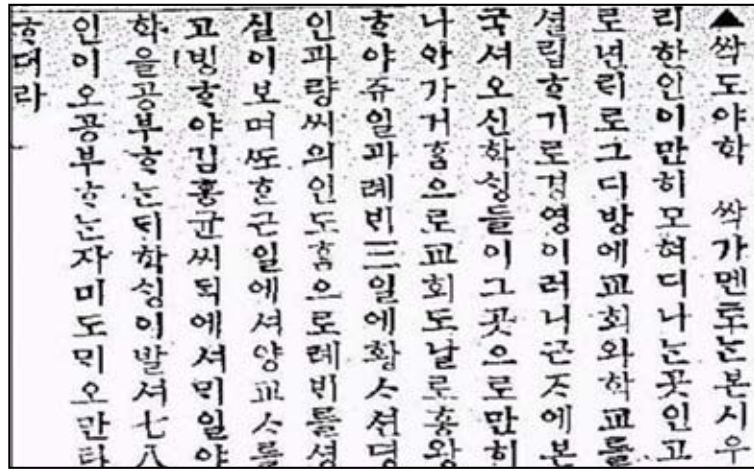 ▲싹도야학 싹가멘토ᄂᆞᆫ본시우
리한인이만히모혀디나ᄂᆞᆫ곳인고
로년ᄅᆡ로그디방에교회와학교를
셜립ᄒᆞ기로경영이러니근ᄌᆞ에본
국셔오신학ᄉᆡᆼ들이그곳으로만히
나아가거ᄒᆞᆷ으로교회도날로흥왕
ᄒᆞ야쥬일과례ᄇᆡ三일에황ᄉᆞ션뎡
인과량씨의인도ᄒᆞᆷ으로례ᄇᆡ를셩
실이보며ᄯᅩᄒᆞᆫ근일에셔양교ᄉᆞ를
고빙ᄒᆞ야김홍균씨ᄃᆡᆨ에셔ᄆᆡ일야
학을공부ᄒᆞᄂᆞᆫᄃᆡ학ᄉᆡᆼ이발셔七八
인이오공부ᄒᆞᄂᆞᆫ자미도ᄆᆡ오만타
ᄒᆞ더라